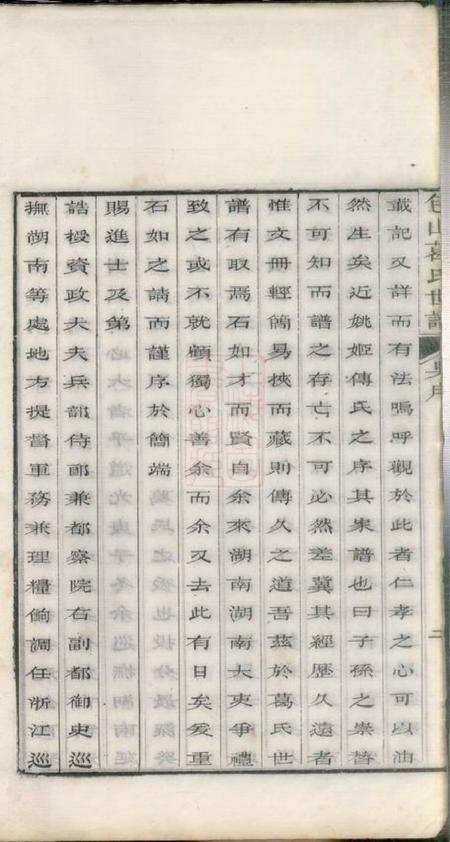 包山葛氏世譜
吳序
二
載記又詳而有法嗚呼觀於此者仁孝之心可以油
然生矣近姚姬傳氏之序其家譜也曰子孫之崇替
不可知而譜之存亡不可必然差冀其經歷久遠者
惟文冊輕簡易挾而藏則傳久之道吾茲於葛氏世
譜有取焉石如才而賢自余來湖南湖南大吏爭禮
致之或不就顧獨心善余而余又去此有日矣爰重
石如之請而謹序於簡端
賜進士及第
誥授資政大夫兵部侍郎兼都察院右副都御史巡
撫湖南等處地方提督軍務兼理糧餉調任浙江巡